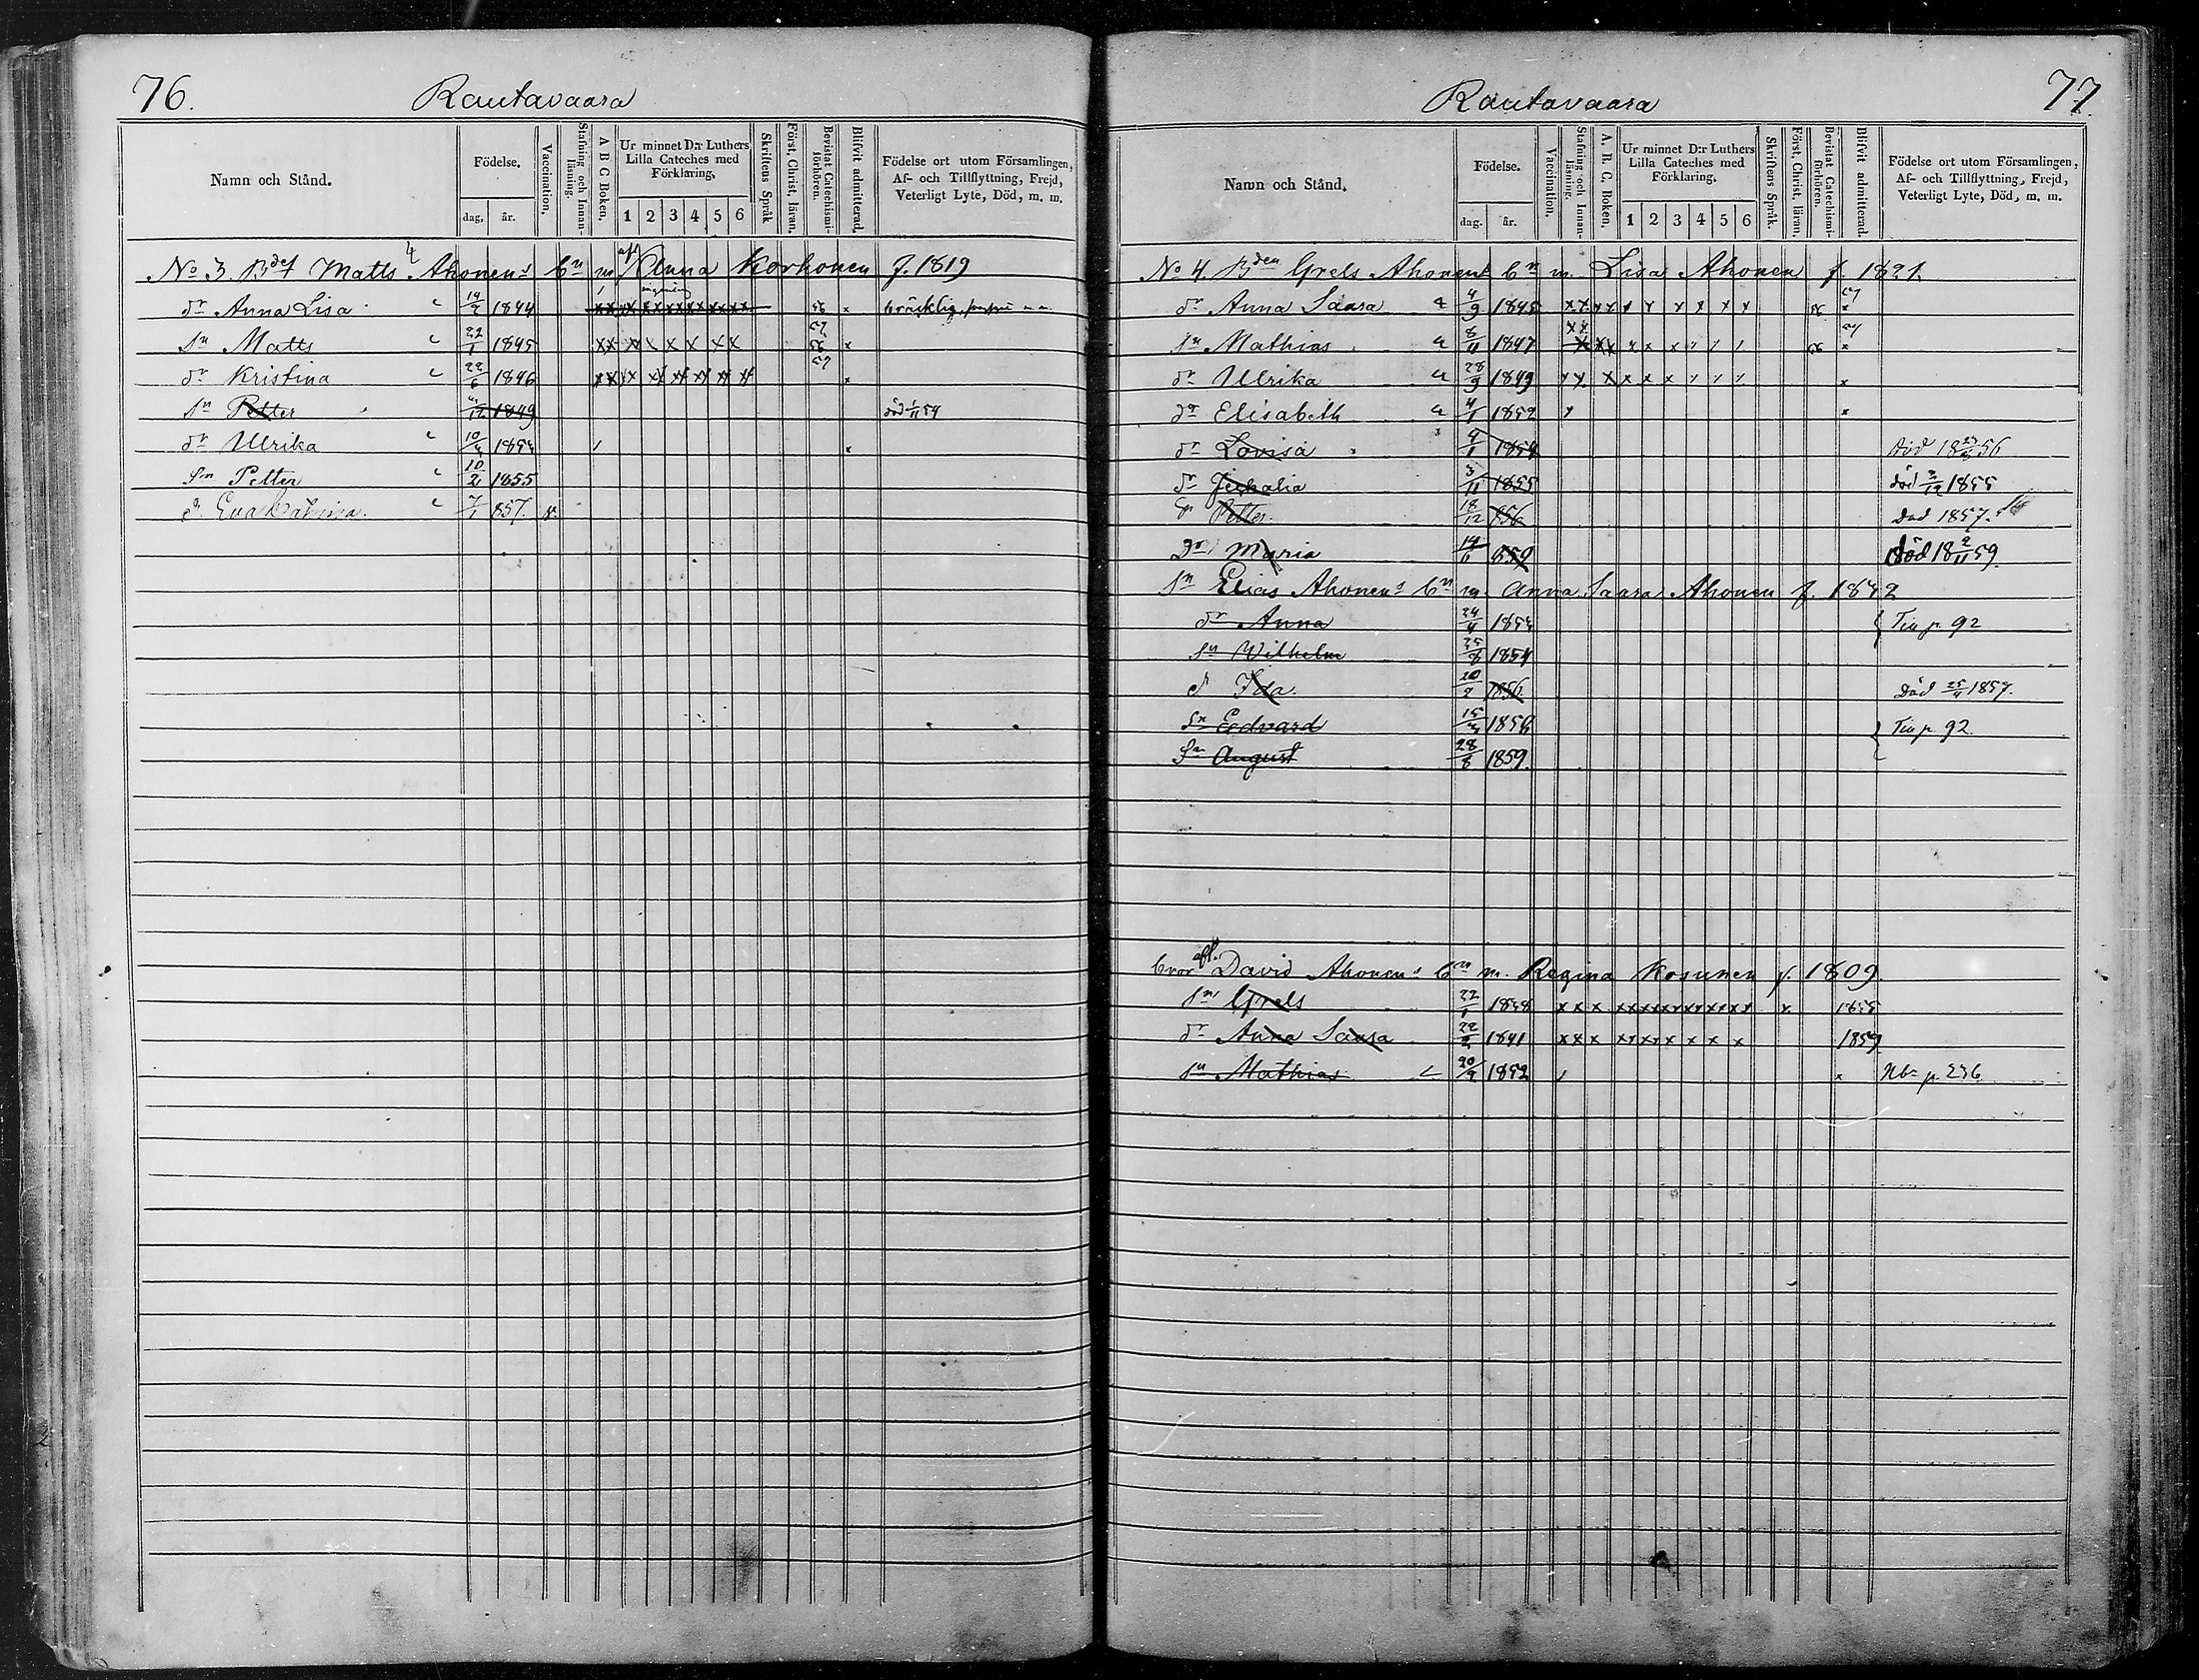 76. Rautavaara
Namn och Stånd.
Födelse.
dag. år.
Vaccination.
Stafning och Innan-läsning.
A B C Boken.
Ur minnet D:r Luthers Lilla Cateches med Förklaring.
1 2 3 4 5 6
Skriftens Språk
Först. Christ. läran.
Bevistat Catechismi-förhören.
Blifvit admitterad.
Födelse ort utom Församlingen, Af- och Tillflyttning, Frejd, Veterligt Lyte, Död, m. m.
No 3. Matts Ahonens bn m Anna Korhonen f. 1819
dr Anna Lisa 14/2 1844 x x x x x x x x x x 56 x bräcklig
Sn Matts 22/1 1845 x x x x x x x x 57 56 x
dr Kristina 22/6 1846 57 x
Sn Petter 1849 död 1/11 54
dr Ulrika x
Sn Petter 10/2 1855
d. Eva 7/1 857. x
77. Rautavaara
Namn och Stånd.
Födelse.
dag. år.
Vaccination.
Stafning och Innan-läsning.
A. B. C. Boken.
Ur minnet D:r Luthers Lilla Cateches med Förklaring.
1 2 3 4 5 6
Skriftens Språk
Först. Christ. läran.
Bevistat Catechismi-förhören.
Blifvit admitterad.
Födelse ort utom Församlingen, Af- och Tillflyttning, Frejd, Veterligt Lyte, Död, m. m.
No 4. Bden Grels Ahonens bn m. Lisa Ahonen f. 1821
dr Anna Saara 4/9 1845 56 57 x
Sn Mathias 8/11 1847 56 57 x
dr Ulrika 28/9 1849 x
dr Elisabeth 4/1 1852 x
dr Lovisa 4/1 1854 Död 18 56
dr 3/11 1855 död 1855
Petter 18/12 856 Död 1857.
Dr Maria 14/6 859 död 18 2/11 59
Sn Elias Ahonens bn m. Anna Saara Ahonen f. 1842
dr Anna 24/4 p. 92
Sn Wilhelm 25/8 1854
d Ida 20/2 1856 Död 25/4 1857.
Sn Edvard 15 1858 p. 92.
Sn August 28/8 1859.
bror afl. David Ahonens bn m. Regina Kosunen f. 1809
Sn Grels 22/1 1838 x x x x x x x x x x x 1855
dr Anna Saara 22/2 1841 x x x x x x x x x x 1859
Sn Mathias 20/2 1852 x p. 236